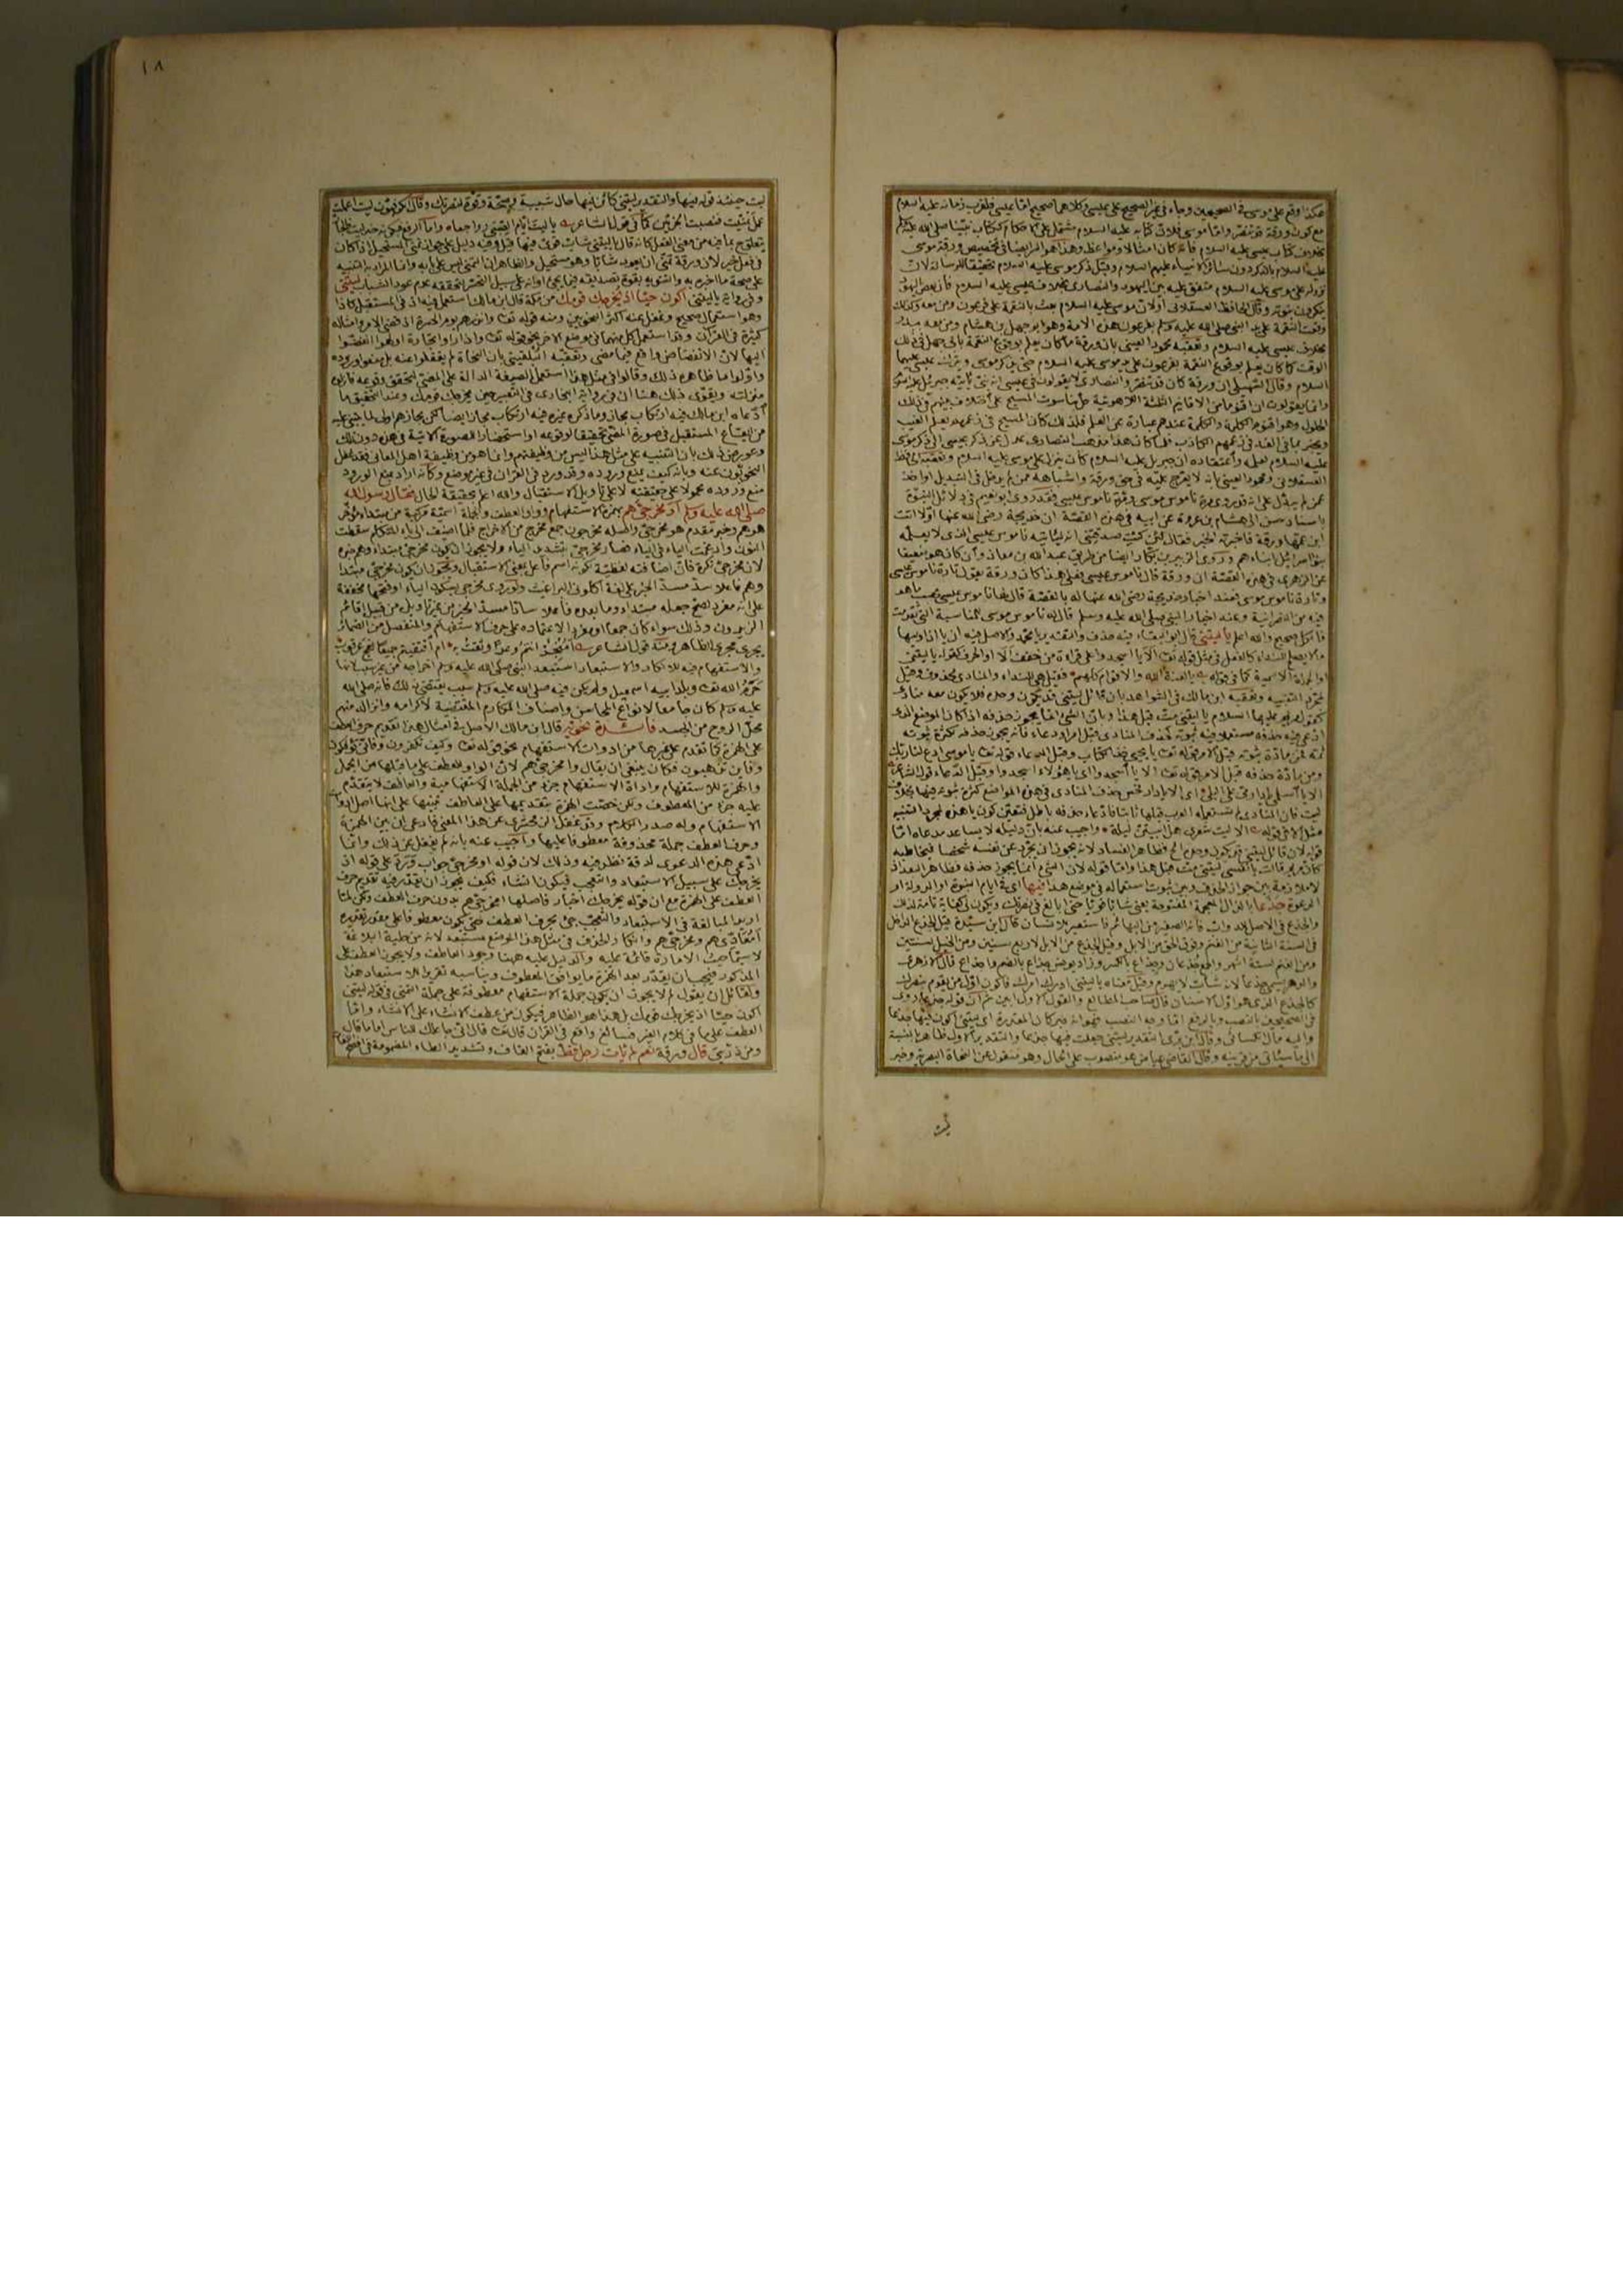 هكذا وقع على موسى في الصحيحين وجاء في غير الصحيح على عيسى وكلاهما صحيح اما عيسى فلقرب زمانه عليه السلام
مع كون ورقة قد تنصر واما موسى فلان كتابه عليه السلام مشتمل على الاحكام ككتاب نبينا صلى الله عليه وسلم
بخلاف كتاب عيسى عليه السلام فانه كان امثالا ومواعظ وهذا هو المراد ايضا في تخصيص ورقة موسى
عليه السلام بالذكر دون سائر الانبياء عليهم السلام وقيل ذكر موسى عليه السلام تحقيقا للرسالة لان
نزوله على موسى عليه السلام متفق عليه بين اليهود والنصارى بخلاف عيسى عليه السلام فان بعض اليهود
ينكرون نبوته وقال الحافظ العسقلاني او لان موسى عليه السلام بعث بالنقمة على فرعون ومن معه وكذلك
وقعت النقمة على يد النبي صلى الله عليه وسلم بفرعون هذه الامة وهو ابو جهل بن هشام ومن معه ببدر
بخلاف عيسى عليه السلام وتعقبه محمود العيني بان ورقة ما كان يعلم بوقوع النقمة بابي جهل في ذلك
الوقت كما كان يعلم بوقوع النقمة بفرعون على يد موسى عليه السلام حتى يذكر موسى ويترك عيسى عليهما
السلام وقال السهيلي ان ورقة كان قد تنصر والنصارى لا يقولون في عيسى انه نبي يأتيه جبريل عليه السلام
وانما يقولون ان اقنوما من الاقانيم الثلثة اللاهوتية حل بناسوت المسيح على اختلاف بينهم في ذلك
الحلول وهو اقنوم الكلمة والكلمة عندهم عبارة عن العلم فلذلك كان المسيح في زعمهم يعلم الغيب
ويخبر بما في الغد في زعمهم الكاذب فلما كان هذا مذهب النصارى عدل عن ذكر عيسى الى ذكر موسى
عليه السلام لعلمه واعتقاده ان جبريل عليه السلام كان ينزل على موسى عليه السلام وتعقبه الحافظ
العسقلاني ومحمود العيني بانه لا يعرج عليه في حق ورقة واشباهه ممن لم يدخل في التبديل او اخذ
عمن لم يبدل على انه قد ورد مرة ناموس موسى ومرة ناموس عيسى فقد روى ابو نعيم في دلائل النبوة
باسناد حسن الى هشام بن عروة عن ابيه في هذه القصة ان خديجة رضي الله عنها اولا اتت
ابن عمها ورقة فاخبرته الخبر فقال لئن كنت صدقتني انه ليأتيه ناموس عيسى الذي لا يعلمه
بنو اسرائيل ابناءهم وروى الزبير بن بكار ايضا من طريق عبد الله بن معاذ وان كان هو ضعيفا
عن الزهري في هذه القصة ان ورقة قال ناموس عيسى فعلى هذا كان ورقة يقول تارة ناموس عيسى
وتارة ناموس موسى فعند اخبار خديجة رضي الله عنها له بالقصة قال لها ناموس عيسى بحسب ما هو
فيه من النصرانية وعند اخبار النبي صلى الله عليه وسلم قال له ناموس موسى للمناسبة التي تقدمت
فالكل صحيح والله اعلم يا ليتني قال ابو البقاء فيه حذف والتقدير يا محمد والاصل فيه ان يا اذا وليها
ما لا يصلح للنداء كالفعل في مثل قوله تعالى الا يا اسجدوا على قراءة من خفف الا او الحرف كقوله يا ليتني
او الجملة الاسمية كما في قوله يا لعنة الله والاقوام كلهم فقيل هي للنداء والمنادى محذوف وقيل
لمجرد التنبيه وتعقبه ابن مالك في الشواهد بان قائل ليتني قد يكون وحده فلا يكون معه منادى
كقول مريم عليها السلام يا ليتني مت قبل هذا وبان الشيء انما يجوز حذفه اذا كان الموضع الذي
ادعي فيه حذفه مستعملا فيه ثبوته كحذف المنادى قبل امر او دعاء فانه يجوز حذفه لكثرة ثبوته
ثمه فمن مادة ثبوته قبل الامر قوله تعالى يا يحيى خذ الكتاب وقبل الدعاء قوله تعالى يا موسى ادع لنا ربك
ومن مادة حذفه قبل الامر قوله تعالى الا يا اسجدوا اي يا هؤلاء اسجدوا وقبل الدعاء قول الشاعر
الا يا اسلمي يا دار مي على البلى اي الا يا دار فحسن حذف المنادى في هذه المواضع كثرة ثبوته فيها بخلاف
ليت فان المنادى لم تستعمله العرب قبلها ثابتا فادعاء حذفه باطل فتعين كون يا هذه لمجرد التنبيه
مثل الا في قوله الا ليت شعري هل ابيتن ليلة واجيب عنه بان دليله لا يساعد مدعاه اما
قوله لان قائل ليتني قد يكون وحده الخ فظاهر الفساد لانه يجوز ان يجرد من نفسه شخصا فيخاطبه
كأن مريم قالت يا نفسي ليتني مت قبل هذا واما قوله لان الشيء انما يجوز حذفه فظاهر البعد اذ
لا ملازمة بين جواز الحذف وبين ثبوت استعماله في موضع هذا فيها اي في ايام النبوة او الدولة او
الدعوة جذعا بالذال المعجمة المفتوحة يعني شابا قويا حتى ابالغ في نصرتك ويكون لي كفاية تامة لذلك
والجذع في الاصل للدواب فانه الصغير من البهائم فاستعير للانسان قال ابن سيدة قيل الجذع الداخل
في السنة الثانية من الغنم وفوق الحق من الابل وقيل الجذع من الابل لاربع سنين ومن الخيل لسنتين
ومن الغنم لستة اشهر والجمع جذعان وجذاع بالكسر وزاد يونس جذاع بالضم واجذاع قال الازهري
والدهر يسمى جذعا لانه شاب لا يهرم وقيل معناه يا ليتني ادرك امرك فاكون اول من يقوم بنصرك
كالجذع الذي هو اول الاسنان قال صاحب المطالع والقول الاول ابين ثم ان قوله جذعا روي
في الصحيحين بالنصب وبالرفع اما وجه النصب فهو انه خبر كان المقدرة اي ليتني اكون فيها جذعا
واليه مال الكسائي وقال ابن بري التقدير ليتني جعلت فيها جذعا والتقدير الاول ظاهر بالنسبة
الى ما سيأتي من قرينه وقال القاضي عياض هو منصوب على الحال وهو منقول عن النحاة البصرية وخبر
١٨
ليت حينئذ قوله فيها والتقدير ليتني كائن فيها حال شبيبة وصحة وقوة لنصرتك وقال الكوفيون ليت اعملت
عمل تمنيت فنصبت الجزئين كما في قول الشاعر يا ليت ايام الصبى رواجعا واما الرفع فعلى انه خبر ليت فالجار
يتعلق بما فيه من معنى الفعل كانه قال ليتني شاب قوي فيها قيل وفيه دليل على جواز تمني المستحيل اذا كان
في فعل خير لان ورقة تمنى ان يعود شابا وهو مستحيل والظاهر ان التمني ليس على بابه وانما المراد به التنبيه
على صحة ما اخبره به والتنويه بقوة تصديقه فيما يجئ او انه على سبيل التحسر لتحققه عدم عود الشباب ليتني
وفي رواية يا ليتني اكون حيا اذ يخرجك قومك من مكة قال ابن مالك استعمل فيه اذ في المستقبل كاذا
وهو استعمال صحيح وغفل عنه اكثر النحويين ومنه قوله تعالى وانذرهم يوم الحسرة اذ قضي الامر وامثاله
كثيرة في القرآن وقد استعمل كل منهما في موضع الآخر نحو قوله تعالى واذا رأوا تجارة او لهوا انفضوا
اليها لان الانفضاض واقع فيما مضى وتعقبه البلقيني بان النحاة لم يغفلوا عنه بل منعوا وروده
واولوا ما ظاهره ذلك وقالوا في مثل هذا استعمل الصيغة الدالة على المضي لتحقق وقوعه فانزله
منزلته ويقوي ذلك هنا ان في رواية البخاري في التعبير حين يخرجك قومك وعند التحقيق ما
ادعاه ابن مالك فيه ارتكاب مجاز وما ذكره غيره فيه ارتكاب مجاز ايضا لكن مجازهم اولى لما يبتنى عليه
من ايقاع المستقبل في صورة المضي تحقيقا لوقوعه او استحضارا للصورة الآتية في هذه دون تلك
وعورض ذلك بان التنبيه على مثل هذا ليس من وظيفتهم وانما هو من وظيفة اهل المعاني فقد غفل
النحويون عنه وبانه كيف يمنع وروده وقد ورد في القرآن في غير موضع وكأنه اراد بمنع الورود
منع وروده محمولا على حقيقته لا على تأويل الاستقبال والله اعلم بحقيقة الحال فقال رسول الله
صلى الله عليه وسلم أو مخرجي هم بهمزة الاستفهام وواو العطف والجملة اسمية مركبة من مبتدأ مؤخر
هو هم وخبر مقدم هو مخرجي واصله مخرجون جمع مخرج من الاخراج فلما اضيف الى ياء المتكلم سقطت
النون وادغمت الياء في الياء فصار مخرجي بتشديد الياء ولا يجوز ان يكون مخرجي مبتدأ وهم خبره
لان مخرجي نكرة فان اضافته لفظية لكونه اسم فاعل بمعنى الاستقبال ويجوز ان يكون مخرجي مبتدأ
وهم فاعلا سد مسد الخبر على لغة اكلوني البراغيث ولو روي مخرجي بسكون الياء او فتحها مخففة
على انه مفرد لصح جعله مبتدأ وما بعده فاعلا سادا مسد الخبر من غير تأويل من قبيل اقائم
الزيدون وذلك سواء كان جمعا او مفردا لاعتماده على حرف الاستفهام والمنفصل من الضمائر
يجري مجرى الظاهر ومنه قول الشاعر أمنجز انتم وعدا وثقت به ام اقتفيتم جميعا نهج عرقوب
والاستفهام فيه للانكار والاستبعاد استبعد النبي صلى الله عليه وسلم اخراجه من غير سبب لانها
حرم الله تعالى وبلد ابيه اسمعيل ولم يكن فيه صلى الله عليه وسلم سبب يقتضي ذلك فانه صلى الله
عليه وسلم كان جامعا لانواع المحاسن واصناف المكارم المقتضية لاكرامه وانزاله منهم
محل الروح من الجسد فائدة نحوية قال ابن مالك الاصل في امثال هذا تقديم حرف العطف
على الهمزة كما تقدم على غيرها من ادوات الاستفهام نحو قوله تعالى وكيف تكفرون وفأنى تؤفكون
وفأين تذهبون فكان ينبغي ان يقال وأمخرجي هم لان الواو للعطف على ما قبلها من الجمل
والهمزة للاستفهام واداة الاستفهام جزء من الجملة الاستفهامية والعاطف لا يتقدم
عليه جزء من المعطوف ولكن خصت الهمزة بتقديمها على العاطف تنبيها على انها اصل ادوات
الاستفهام وله صدر الكلام وقد غفل الزمخشري عن هذا المعنى فادعى ان بين الهمزة
وحرف العطف جملة محذوفة معطوفا عليها واجيب عنه بانه لم يغفل عن ذلك وانما
ادعى هذه الدعوى لدقة نظره فيه وذلك لان قوله او مخرجي جواب ورد على قوله اذ
يخرجك على سبيل الاستبعاد والتعجب فيكون انشاء فكيف يجوز ان يقدر فيه تقديم حرف
العطف على الهمزة مع ان قوله يخرجك اخبار فاصلها أمخرجي هم بدون حرف العطف ولكن لما
اريد المبالغة في الاستبعاد والتعجب جئ بحرف العطف حتى يكون معطوفا على مقدر تقديره
أمعادي هم ومخرجي هم وانكار الحذف في مثل هذا الموضع مستبعد لانه من حلية البلاغة
لا سيما حيث الامارة قائمة عليه والدليل عليه ههنا وجود العاطف ولا يجوز العطف على
المذكور فيجب ان يقدر بعد الهمزة ما يوافق المعطوف ويناسبه تقريرا للاستبعاد هذا
ولقائل ان يقول لم لا يجوز ان يكون جملة الاستفهام معطوفة على جملة التمني في قوله ليتني
اكون حيا اذ يخرجك قومك بل هذا هو الظاهر فيكون من عطف الانشاء على الانشاء واما
العطف على ما في كلام الغير فسائغ واقع في القرآن قال تعالى قال اني جاعلك للناس اماما قال
ومن ذريتي قال ورقة نعم لم يأت رجل قط بفتح القاف وتشديد الطاء المضمومة في افصح اللغات